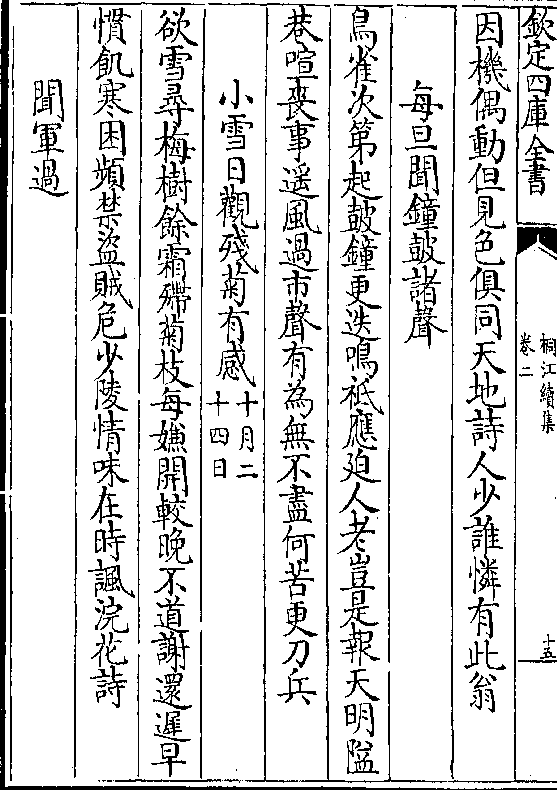 欽定四庫全書
桐江續集
卷二
十五
因機偶動但見色俱同天地詩人少誰憐有此翁
每旦聞鐘鼓諸聲
鳥雀次第起鼓鐘更迭鳴祗應廹人老豈是報天明隘
巷喧喪事遥風過市聲有為無不盡何苦更刀兵
小雪日觀殘菊有感十月二
十四日
欲雪尋梅樹餘霜殢菊枝每嫌開較晚不道謝還遲早
慣飢寒困頻禁盜賊危少陵情味在時諷浣花詩
聞軍過